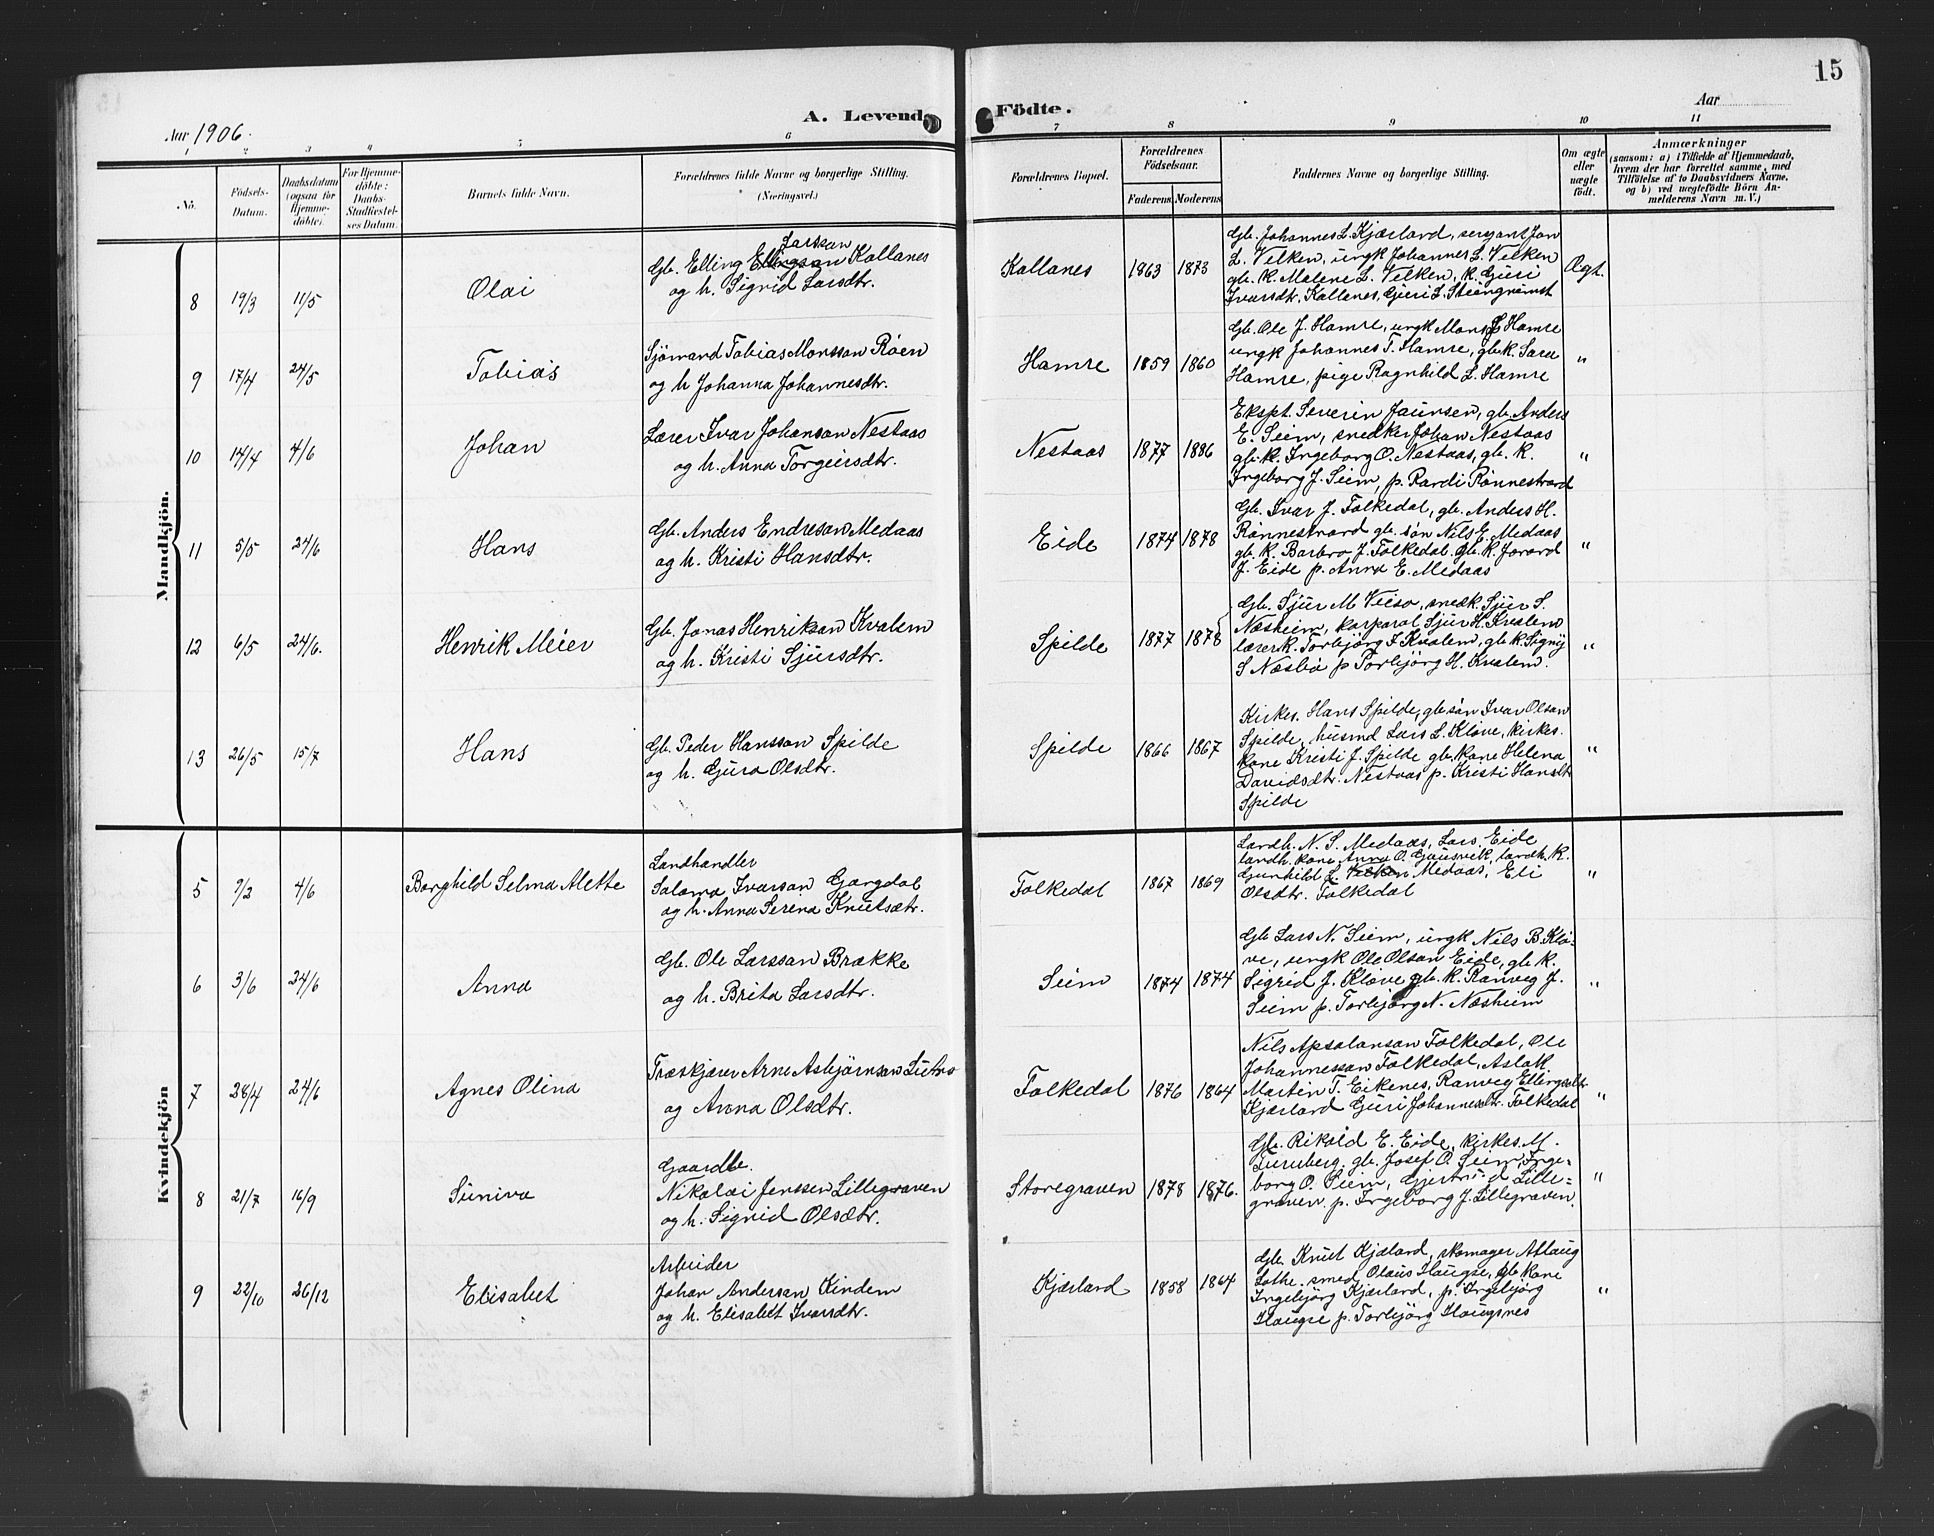 15
A. Levende Födte.
Aar 1906.
Aar
1 2 3 4 5 6 7 8 9 10 11
No.
Födsels-Datum.
Daabsdatum (ogsaa for Hjemmedöbte).
For Hjemmedöbte: Daabs-Stadfæstelses Datum.
Barnets fulde Navn.
Forældrenes fulde Navne og borgerlige Stilling.
(Næringsvei.)
Forældrenes Bopæl.
Forældrenes Födselsaar.
Faderens Moderens
Faddernes Navne og borgerlige Stilling.
Om ægte eller uægte födt.
Anmærkninger
(saasom: a) i Tilfælde af Hjemmedaab, hvem der har forrettet samme, med Tilföielse af to Daabsvidners Navne, og b) ved uægtefödte Börn Anmelderens Navn m. V.)
Mandkjön.
8 19/3 11/5 Olai
Larsson
Gb. Elling Ellingson Kallanes
og h. Sigrid Larsdtr.
Kallanes 1863 1873
Gb. Johannes L. Kjærland, sergant Jon
L. Velken, ungk Johannes L. Velken
gb. k. Malene L. Velken, k. Guri
Ivarsdtr. Kallenes, Guri L.
Ægt.
9 17/4 24/5 Tobias
Sjömand Tobias Monsson Röen
og h Johanna Johannesdtr.
Hamre 1859 1860
Gb. Ole J. Hamre, ungk Mons J Hamre
ungk Johannes T. Hamre, gb. k. Sara
Hamre, pige Ragnhild L. Hamre
"
10 14/4 4/6 Johan
Lærer Ivar Johanson Nestaas
og h. Anna Torgeirsdtr.
Nestaas 1877 1886
Ekspt. Severin Jaunsen, gb. Anders
E. Seim, snedker Johan Nestaas
gb. k. Ingeborg O. Nestaas, gb. k.
Ingeborg J. Seim, p. Rardi Rönnestrand
"
11 5/5 24/6 Hans
Gb. Anders Endreson Medaas
og h. Kristi Hansdtr.
Eide 1874 1878
Gb. Ivar J. Folkedal, gb. Anders H.
Rönnestrand gb. sön Nils E. Medaas
gb. k. Barbro J. Folkedal. gb. k. Jorand
J. Eide p. Anna E. Medaas
"
12 6/5 24/6. Henrik Meier
Gb. Jonas Henrikson Kvalem
og h. Kristi Sjursdtr.
Spilde 1877 1878
Gb. Sjur M. snedk. Sjur S.
Næsheim, korporal Sjur H. Kvalem
lærerk. Torbjörg J. Kvalem, gb. k. Signy
S Næsbö p Torbjörg H. Kvalem.
"
13 26/5 15/7 Hans
Gb. Peder Hansson Spilde
og h. Guro Olsdtr.
Spilde 1866 1867
Kirkes. Hans Spilde, gb. sön Ivar Olson
Spilde, husmd Lars L. Klöve, kirkes.
kone Kristi J. Spilde gb. kone Helena
Davidsdtr. Nestaas p. Kristi Hansdtr
Spilde
"
Kvindekjön
5 7/2 4/6 Borghild Selma Alette
Landhandler
Salamo Ivarson Gjangdal
og h. Anna Serena Knutsdtr.
Folkedal 1867 1869
Landh. N. S. Medaas, Lars Eide
landh. kone Anna O. landh. k.
Gunhild L. Velken Medaas, Eli
Olsdtr. Folkedal
"
6 3/6 24/6 Anna
Gb. Ole Larsson Brække
og h. Brita Larsdtr.
Seim 1874 1874
Gb Lars N. Seim, ungk Nils B. Klö-
ve, ungk Ole Olson Eide, gb. k.
Sigrid J. Klöve gb. k. Ranveig J.
Seim p. Torbjörg N. Næsheim
"
7 28/4 24/6 Agnes Olina
Træskjærer Arne Asbjörnson
og Anna Olsdtr.
Folkedal 1876 1864
Nils Apsalonson Folkedal, Ole
Johannesson Folkedal, Aslak
Martin T. Eikenes, Ranveig Ellingsdtr
Kjærland Guri Johannesdtr. Folkedal
"
8 21/7 16/9 Suniva
Gaardbr.
Nikolai Jensen Lillegraven
og h. Sigrid Olsdtr.
Storegraven 1878 1876.
Gb. Rikold E. Eide, kirkes. M.
Furuberg. gb. Josef O. Seim, Inge-
borg O. Seim, Gjertrud Lille-
graven. p. Ingeborg J. Lillegraven.
"
9 22/10 26/12 Elisabet
Arbeider
Johan Anderson Kindem
og h. Elisabet Ivarsdtr.
Kjærland 1858 1864
Gb. Knut Kjærland, skomager Aslaug
Lothe. smed Olaus Haugse, gb kone
Ingebjörg Kjærland, p. Ingebjörg
Haugse p. Torbjörg Haugsnes
"